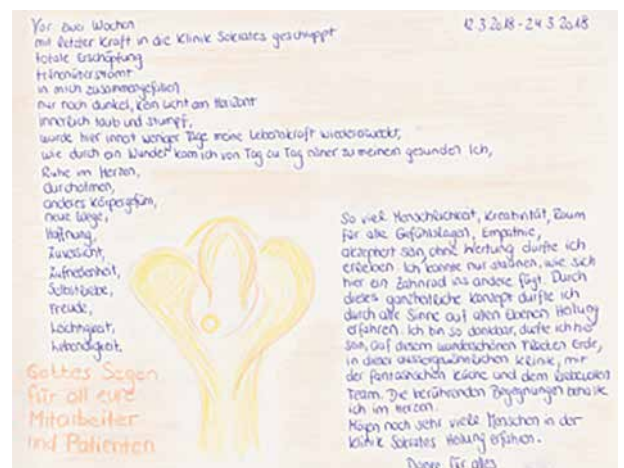 Vor zwei Wochen
12.3.2018 - 24.3.2018
mit letzter Kraft in die Klinik Sokrates geschleppt
totale Erschöpfung
tränenüberströmt
in mich zusammengefallen
nur noch dunkel, kein Licht am Horizont
innerlich taub und stumpf,
wurde hier innert weniger Tage meine Lebenskraft wiedererweckt,
wie durch ein Wunder kam ich von Tag zu Tag näher zu meinem gesunden Ich,
Ruhe im Herzen,
durchatmen,
anderes Körpergefühl,
neue Wege,
Hoffnung,
Zuversicht,
Zufriedenheit,
Selbstliebe,
Freude,
Leichtigkeit,
Lebendigkeit.
Gottes Segen
für all eure
Mitarbeiter
und Patienten
So viel Menschlichkeit, Kreativität, Raum
für alle Gefühlslagen, Empathie,
akzeptiert sein, ohne Wertung durfte ich
erleben. Ich konnte nur staunen, wie sich
hier ein Zahnrad ins andere fügt. Durch
dieses ganzheitliche Konzept durfte ich
durch alle Sinne auf allen Ebenen Heilung
erfahren. Ich bin so dankbar, durfte ich hier
sein, auf diesem wunderschönen Flecken Erde,
in dieser aussergewöhnlichen Klinik, mit
der fantastischen Küche und dem liebevollen
Team. Die berührenden Begegnungen behalte
ich im Herzen.
Mögen noch sehr viele Menschen in der
Klinik Sokrates Heilung erfahren.
Danke für alles